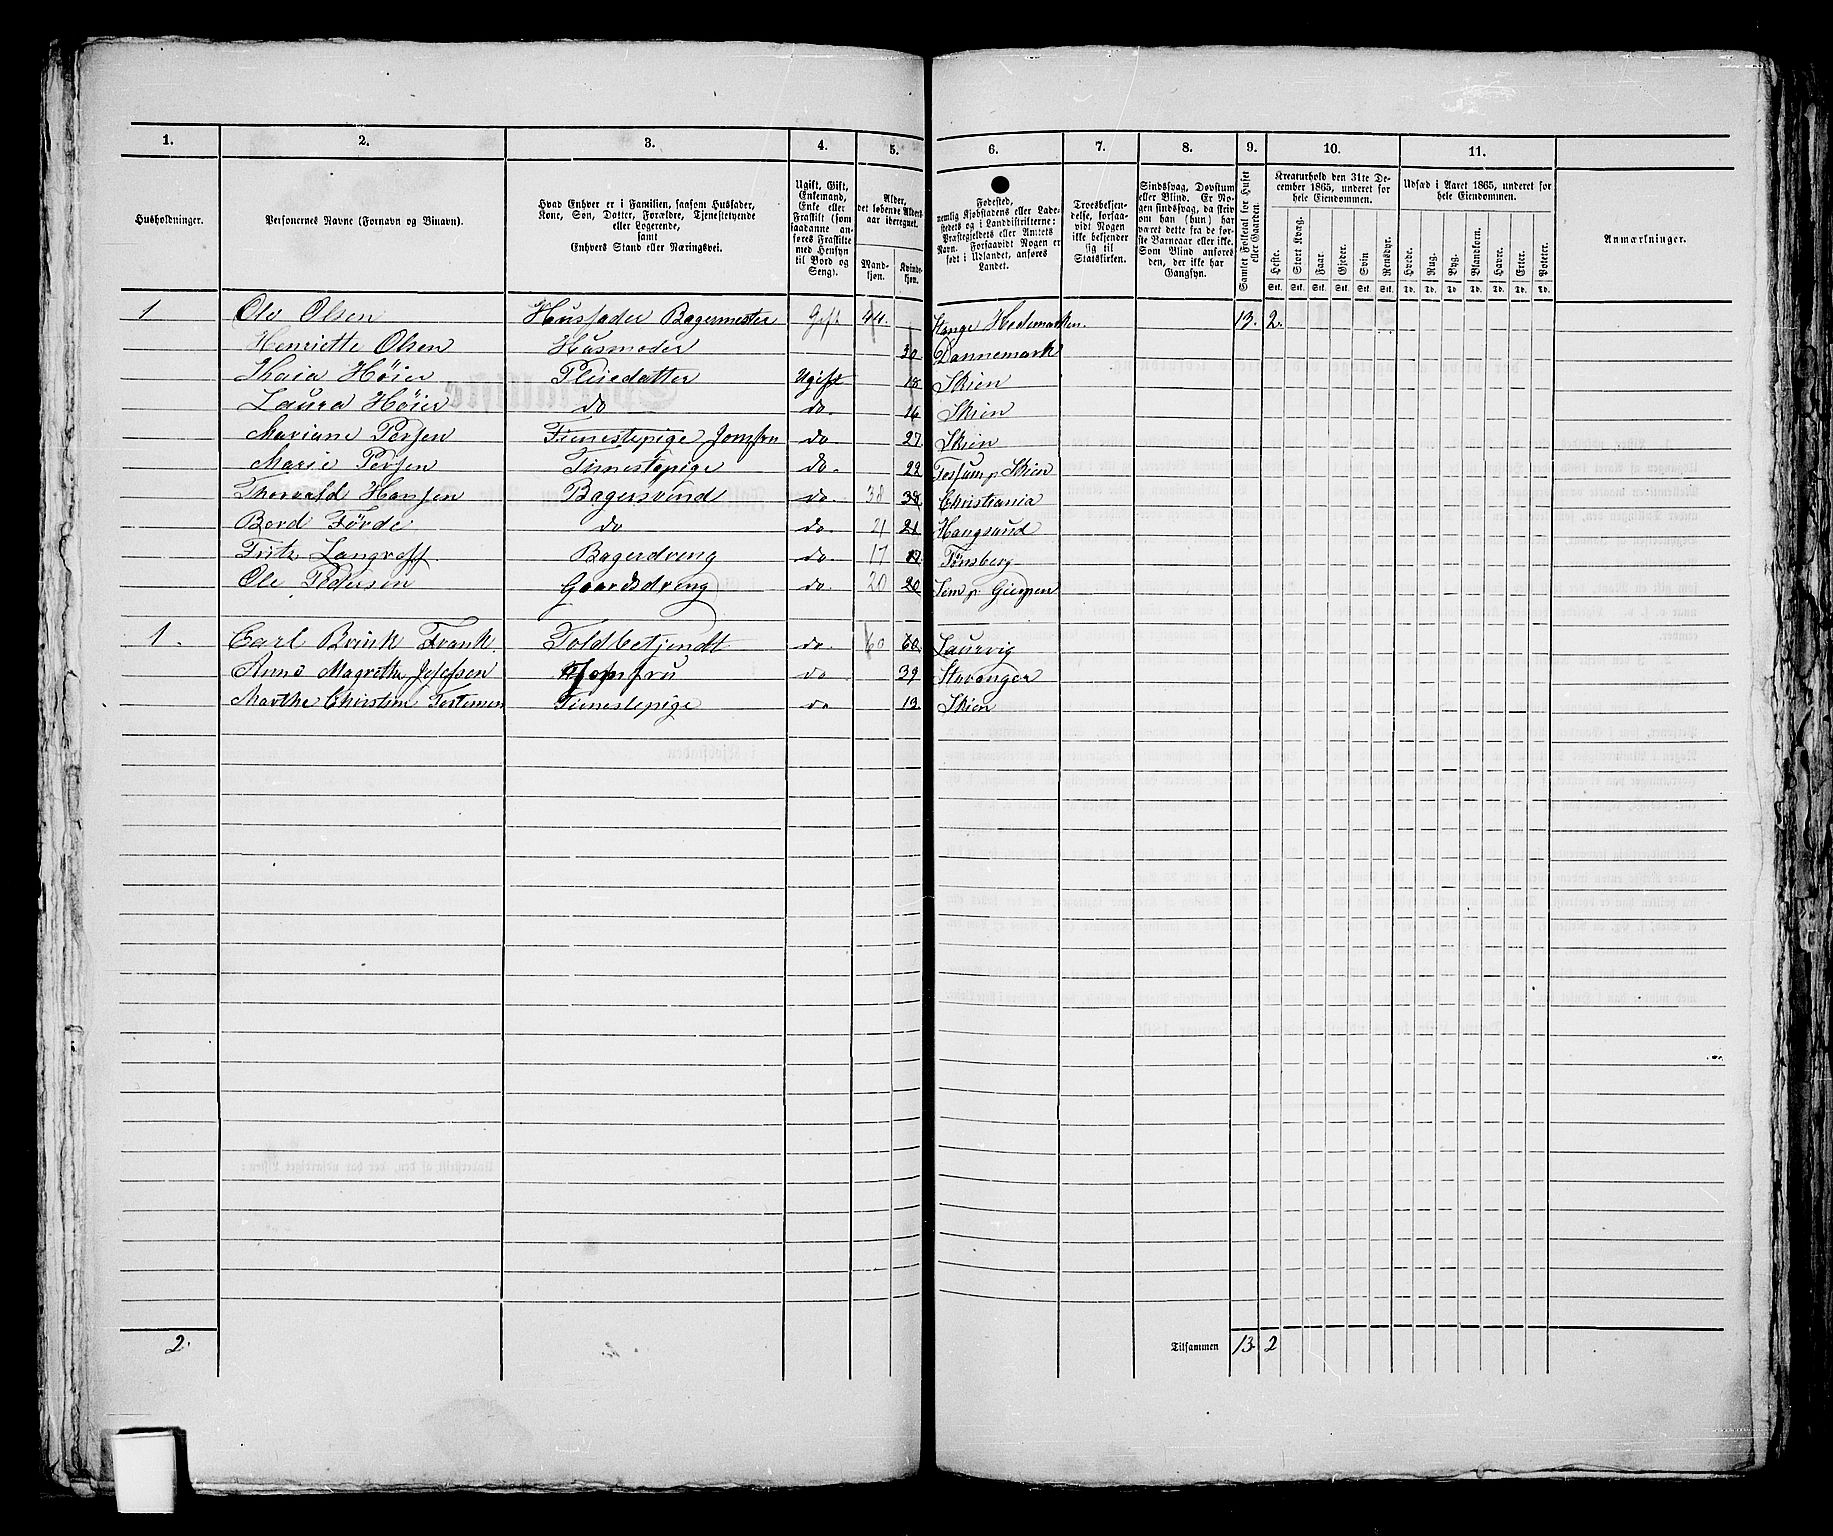 1. 2. 3. 4. 5. 6. 7. 8. 9. 10. 11.
Husholdninger.
Personernes Navne (Fornavn og Binavn).
Hvad Enhver er i Familien, saasom Husfader,
Kone, Søn, Datter, Forældre, Tjenestetyende
eller Logerende,
samt
Enhvers Stand eller Næringsvei.
Ugift, Gift,
Enkemand,
Enke eller
Fraskilt (som
saadanne an-
føres Fraskilte
med Hensyn
til Bord og
Seng).
Alder,
det løbende Alders-
aar iberegnet.
Mand-
kjøn.
Kvinde-
kjøn.
Fødested,
nemlig Kjøbstadens eller Lade-
stedets og i Landdistrikterne:
Præstegjeldets eller Amtets
Navn. Forsaavidt Nogen er
født i Udlandet, anføres
Landet.
Troesbekjen-
delse, forsaa-
vidt Nogen
ikke bekjender
sig til
Statskirken.
Sindssvag, Døvstum
eller Blind. Er No-
gen sindssvag, da skriv
om han (hun) har
været dette fra de før-
ste Barneaar eller ikke.
Som Blind anføres
den, der ikke har
Gangsyn.
Samlet Folketal for Huset
eller Gaarden.
Kreaturhold den 31te De-
cember 1865, underet for
hele Eiendommen.
Heste. Stort Kvæg. Faar. Gjeder. Svin Rensdyr.
Stk. Stk. Stk. Stk. Stk. Stk.
Udsæd i Aaret 1865, underet for
hele Eiendommen.
Hvede. Rug. Byg. Blandkorn. Havre. Erter. Poteter.
Td. Td. Td. Td. Td. Td. Td.
Anmærkninger.
1 Ole Olsen Husfader Bagermester Gift 44. Stange Hedemarken. 13. 2.
Henriette Olsen Husmoder 30. Dannemark
Thaia Høier Pleiedatter Ugift 18 Skien
Laura Høier do do. 16 Skien
Mariane Persen Tienestepige Jomfru do 27. Skien
Marie Persen Tienestepige do. 22 Fossum p. Skien
Thorvald Hansen Bagersvend do 38 38 Christiania
Bord Førde do do. 21 21 Haugsund
Fritz Bagerdreng do 17 17 Tønsberg
Ole Pedersen Gaardsdreng do. 20 20 Sem p. Gierpen
1. Carl Brink Frank. Toldbetjendt do 60 60 Laurvig
Anne Magrethe Josefsen Jomfru do 39 Stavanger
Marthe Christine Tienestepige do 19. Skien
2. Tilsammen 13 2